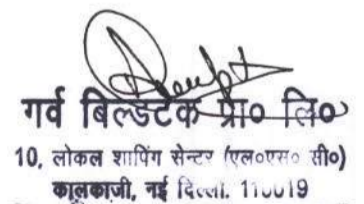 गर्व बिल्डटेक प्रा० लि०
10, लोकल शापिंग सेन्टर (एल०एस० सी०)
कालकाजी, नई दिल्ली. 110019